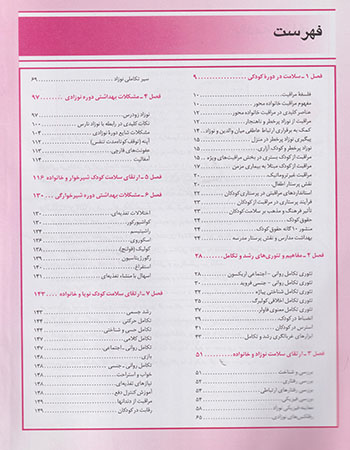 فهرست
فصل ۱ ـ سلامت در دورهٔ کودکی ۹
فلسفهٔ مراقبت ۱۰
مفهوم مراقبت خانواده محور ۱۰
عناصر کلیدی در مراقبت خانواده محور ۱۲
مراقبت از نوزاد پرخطر و ناهنجار ۱۲
کمک به برقراری ارتباط عاطفی میان والدین و نوزاد ۱۴
پیگیری نوزاد پرخطر در منزل ۱۵
نوزاد پرخطر و کودک آزاری ۱۵
مراقبت از کودک بستری در بخش مراقبت‌های ویژه ۱۵
مراقبت از کودک مبتلا به بیماری مزمن ۱۷
مراقبت غیرتروماتیک ۲۰
نقش پرستار اطفال ۲۰
استانداردهای مراقبتی در پرستاری کودکان ۲۲
فرآیند پرستاری در مراقبت از کودکان ۲۲
تأثیر فرهنگ و مذهب بر سلامت کودکان ۲۳
حقوق کودک ۲۴
منشور ۱۰ گانه حقوق کودک ۲۴
بهداشت مدارس و نقش پرستار مدرسه ۲۴
فصل ۲ ـ مفاهیم و تئوری‌های رشد و تکامل ۲۸
تئوری تکامل روانی - اجتماعی اریکسون ۲۸
تئوری تکامل روانی - جنسی فروید ۳۰
تئوری تکامل شناختی پیاژه ۳۲
تئوری تکامل اخلاقی کولبرگ ۳۵
تئوری تکامل معنوی فاولر ۳۷
انضباط در کودک ۳۹
استرس در کودکان ۴۱
ابزارهای غربالگری رشد و تکامل ۴۴
فصل ۳ ـ ارتقای سلامت نوزاد و خانواده ۵۱
بررسی و شناخت ۵۱
بررسی رفتاری ۵۲
بررسی رفتارهای ارتباطی ۵۳
بررسی فیزیکی ۵۳
معاینه فیزیکی نوزاد ۵۸
رفلکس‌های نوزادی ۶۵
سیر تکاملی نوزاد ۶۹
فصل ۴ ـ مشکلات بهداشتی دوره نوزادی ۹۷
نوزاد زودرس ۹۷
نکات کلیدی در رابطه با نوزاد نارس ۱۰۲
مشکلات شایع دورهٔ نوزادی ۱۰۳
آپنه (توقف کوتاه‌مدت تنفس) ۱۱۲
عفونت‌های قارچی ۱۱۳
آمفالیت ۱۱۴
فصل ۵ ـ ارتقای سلامت کودک شیرخوار و خانواده ۱۱۶
فصل ۶ ـ مشکلات بهداشتی دوره شیرخوارگی ۱۳۰
اختلالات تغذیه‌ای ۱۳۰
کواشیورکور
راشیتیسم
اسکوروی ۱۳۶
کولیک (قولنج) ۱۳۸
رگورژیتاسیون ۱۳۹
استفراغ ۱۴۰
اسهال با منشاء تغذیه‌ای ۱۴۱
فصل ۷ ـ ارتقای سلامت کودک نوپا و خانواده ۱۴۳
رشد جسمی ۱۴۳
تکامل حرکتی ۱۴۴
تکامل حسی و شناختی ۱۴۴
تکامل کلامی ۱۴۷
تکامل روانی - اجتماعی ۱۴۷
بازی ۱۴۸
تکامل روانی - جنسی ۱۴۸
خواب و استراحت ۱۴۸
نیازهای تغذیه‌ای ۱۴۸
آموزش کنترل دفع ۱۴۸
مراقبت از دندانها
رقابت در کودکان ۱۴۹